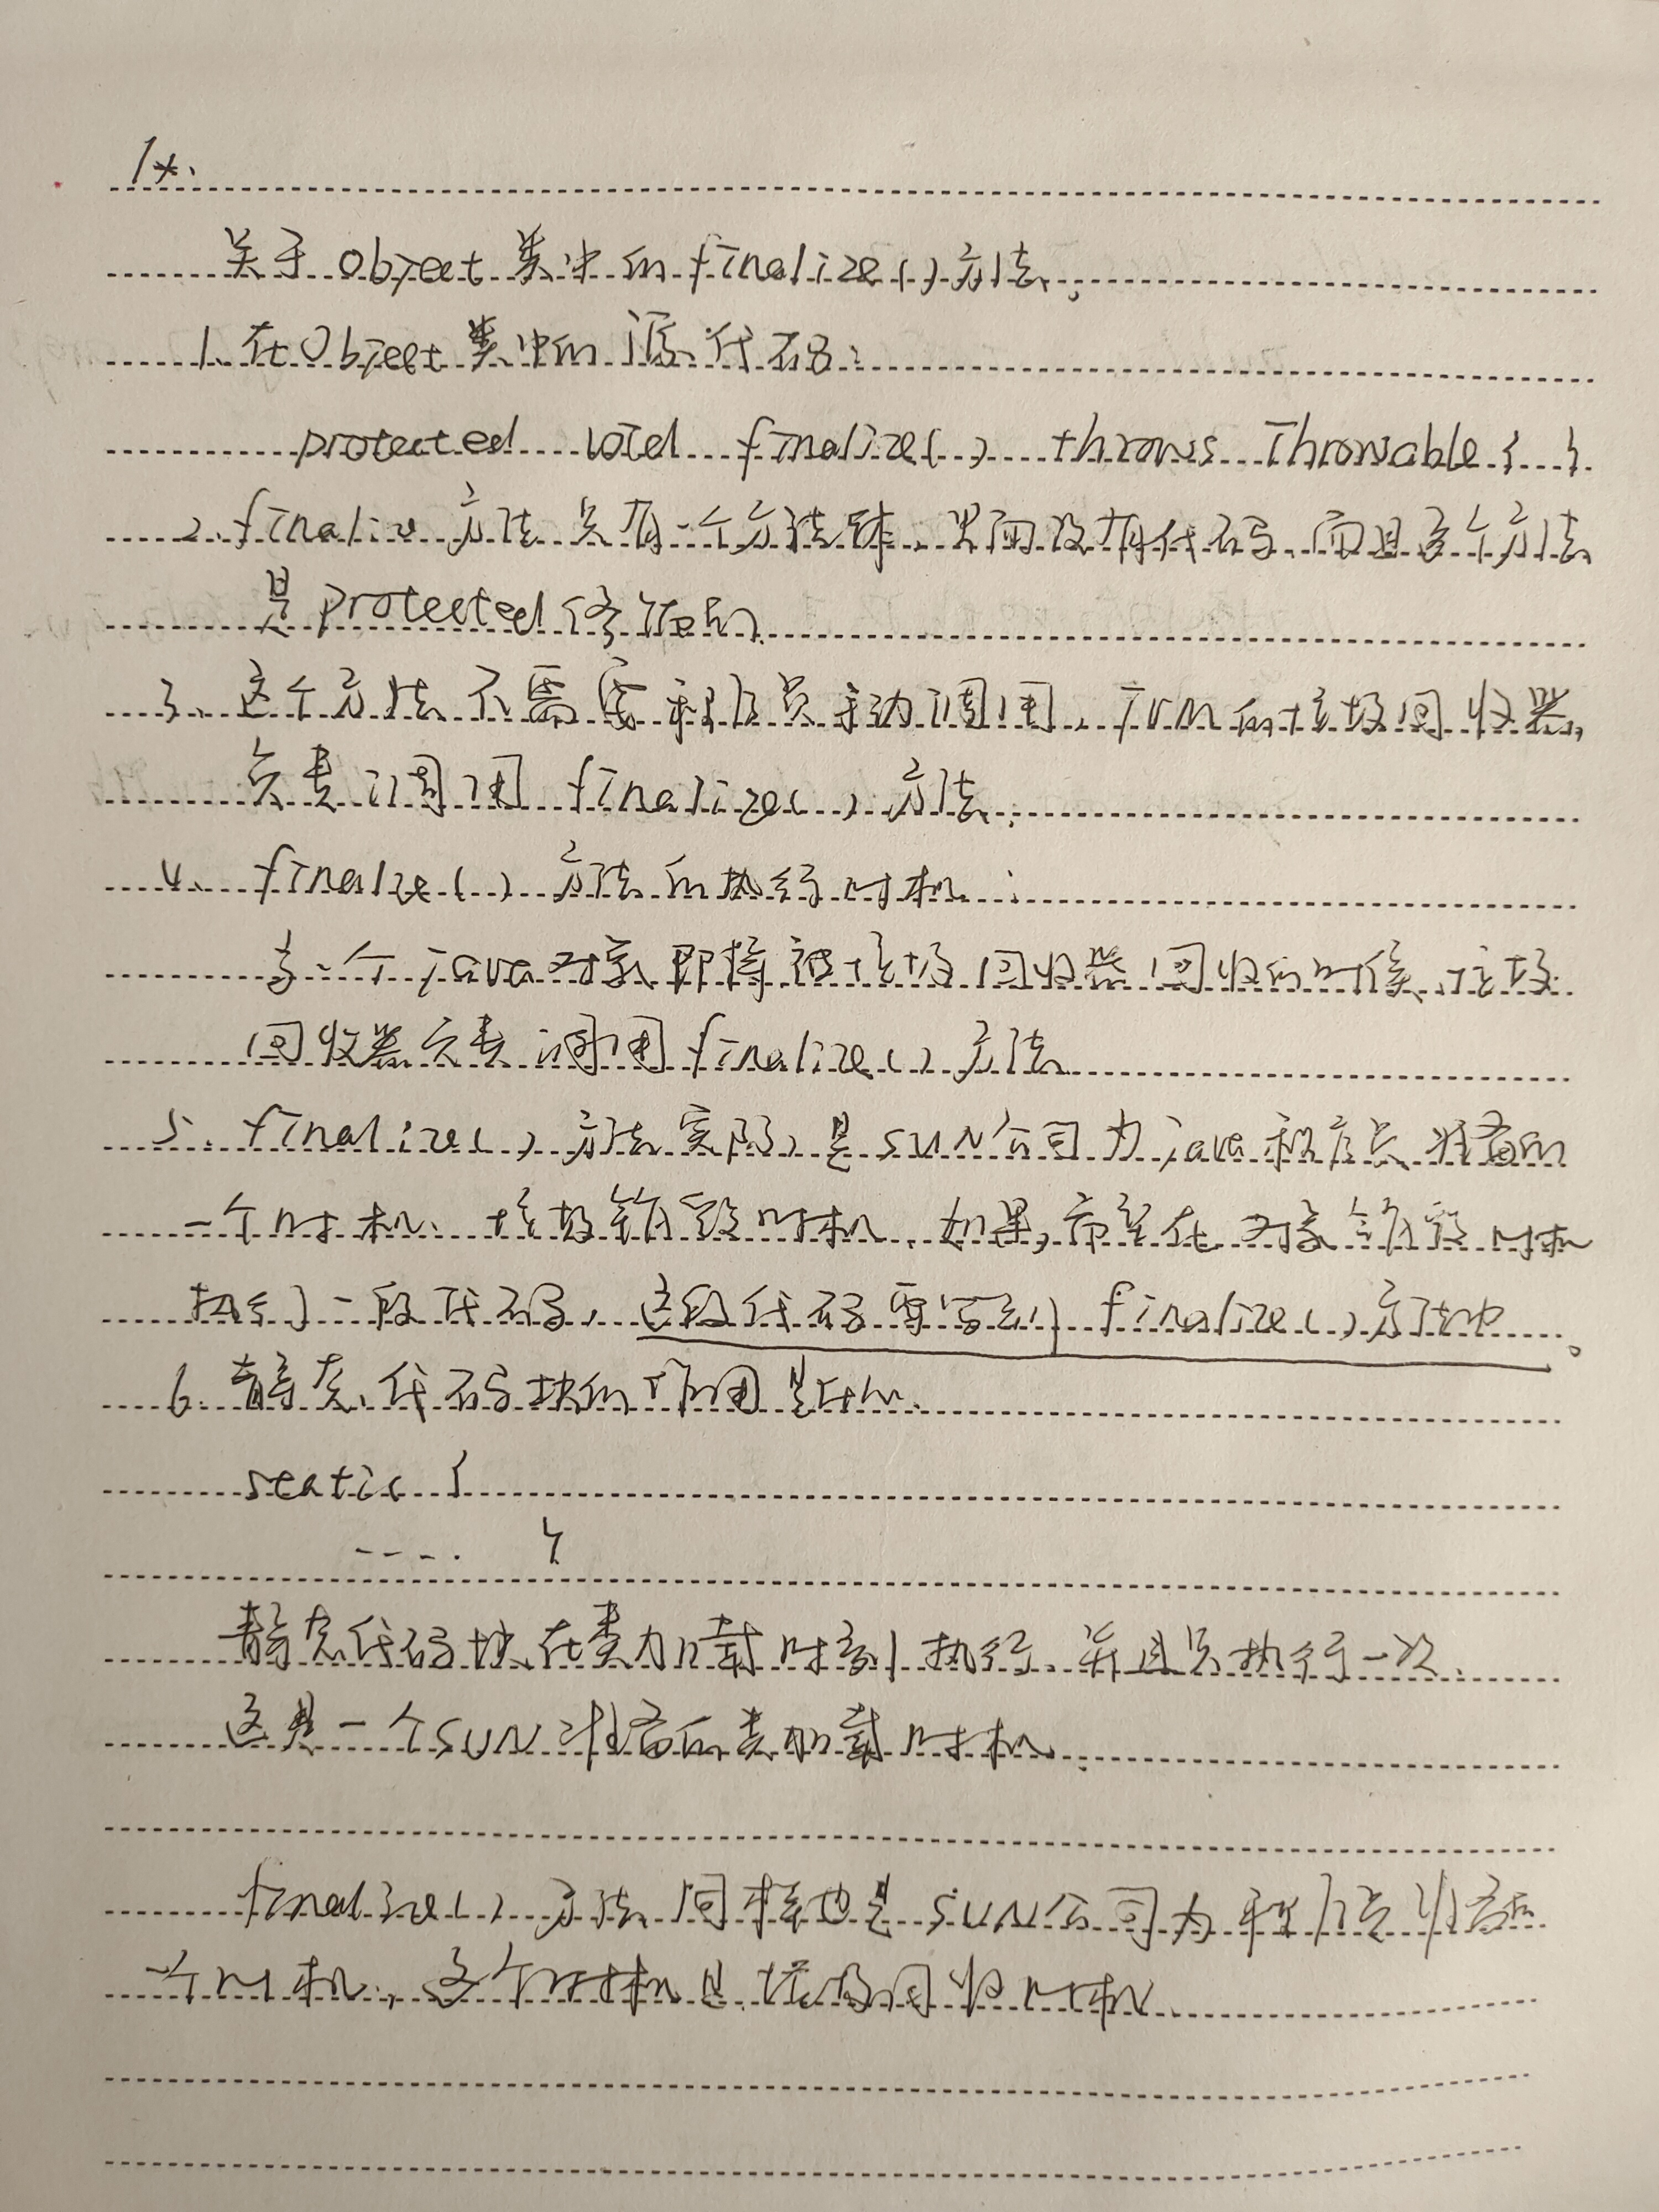 /*.
关于Object类中的finalize()方法.
1.在Object类中的源代码:
protected void finalize() throws Throwable { }
2.finalize方法只有一个方法体,里面没有代码,而且这个方法
是protected修饰的
3、这个方法不需要程序员手动调用,JVM的垃圾回收器,
负责调用finalize()方法.
4、finalize()方法的执行时机:
当一个java对象即将被垃圾回收器回收的时候,垃圾
回收器负责调用finalize()方法
5.finalize()方法实际,是SUN公司为java程序员准备的
一个时机、垃圾销毁时机.如果,希望在对象销毁时机
执行一段代码,这段代码要写到finalize()方法中。
6.静态代码块的作用是什么.
static {
---- }
静态代码块在类加载时刻执行,并且只执行一次.
这是一个SUN准备的类加载时机.
finalize()方法同样也是SUN公司为程序员准备的
一个时机,这个时机是垃圾回收时机.